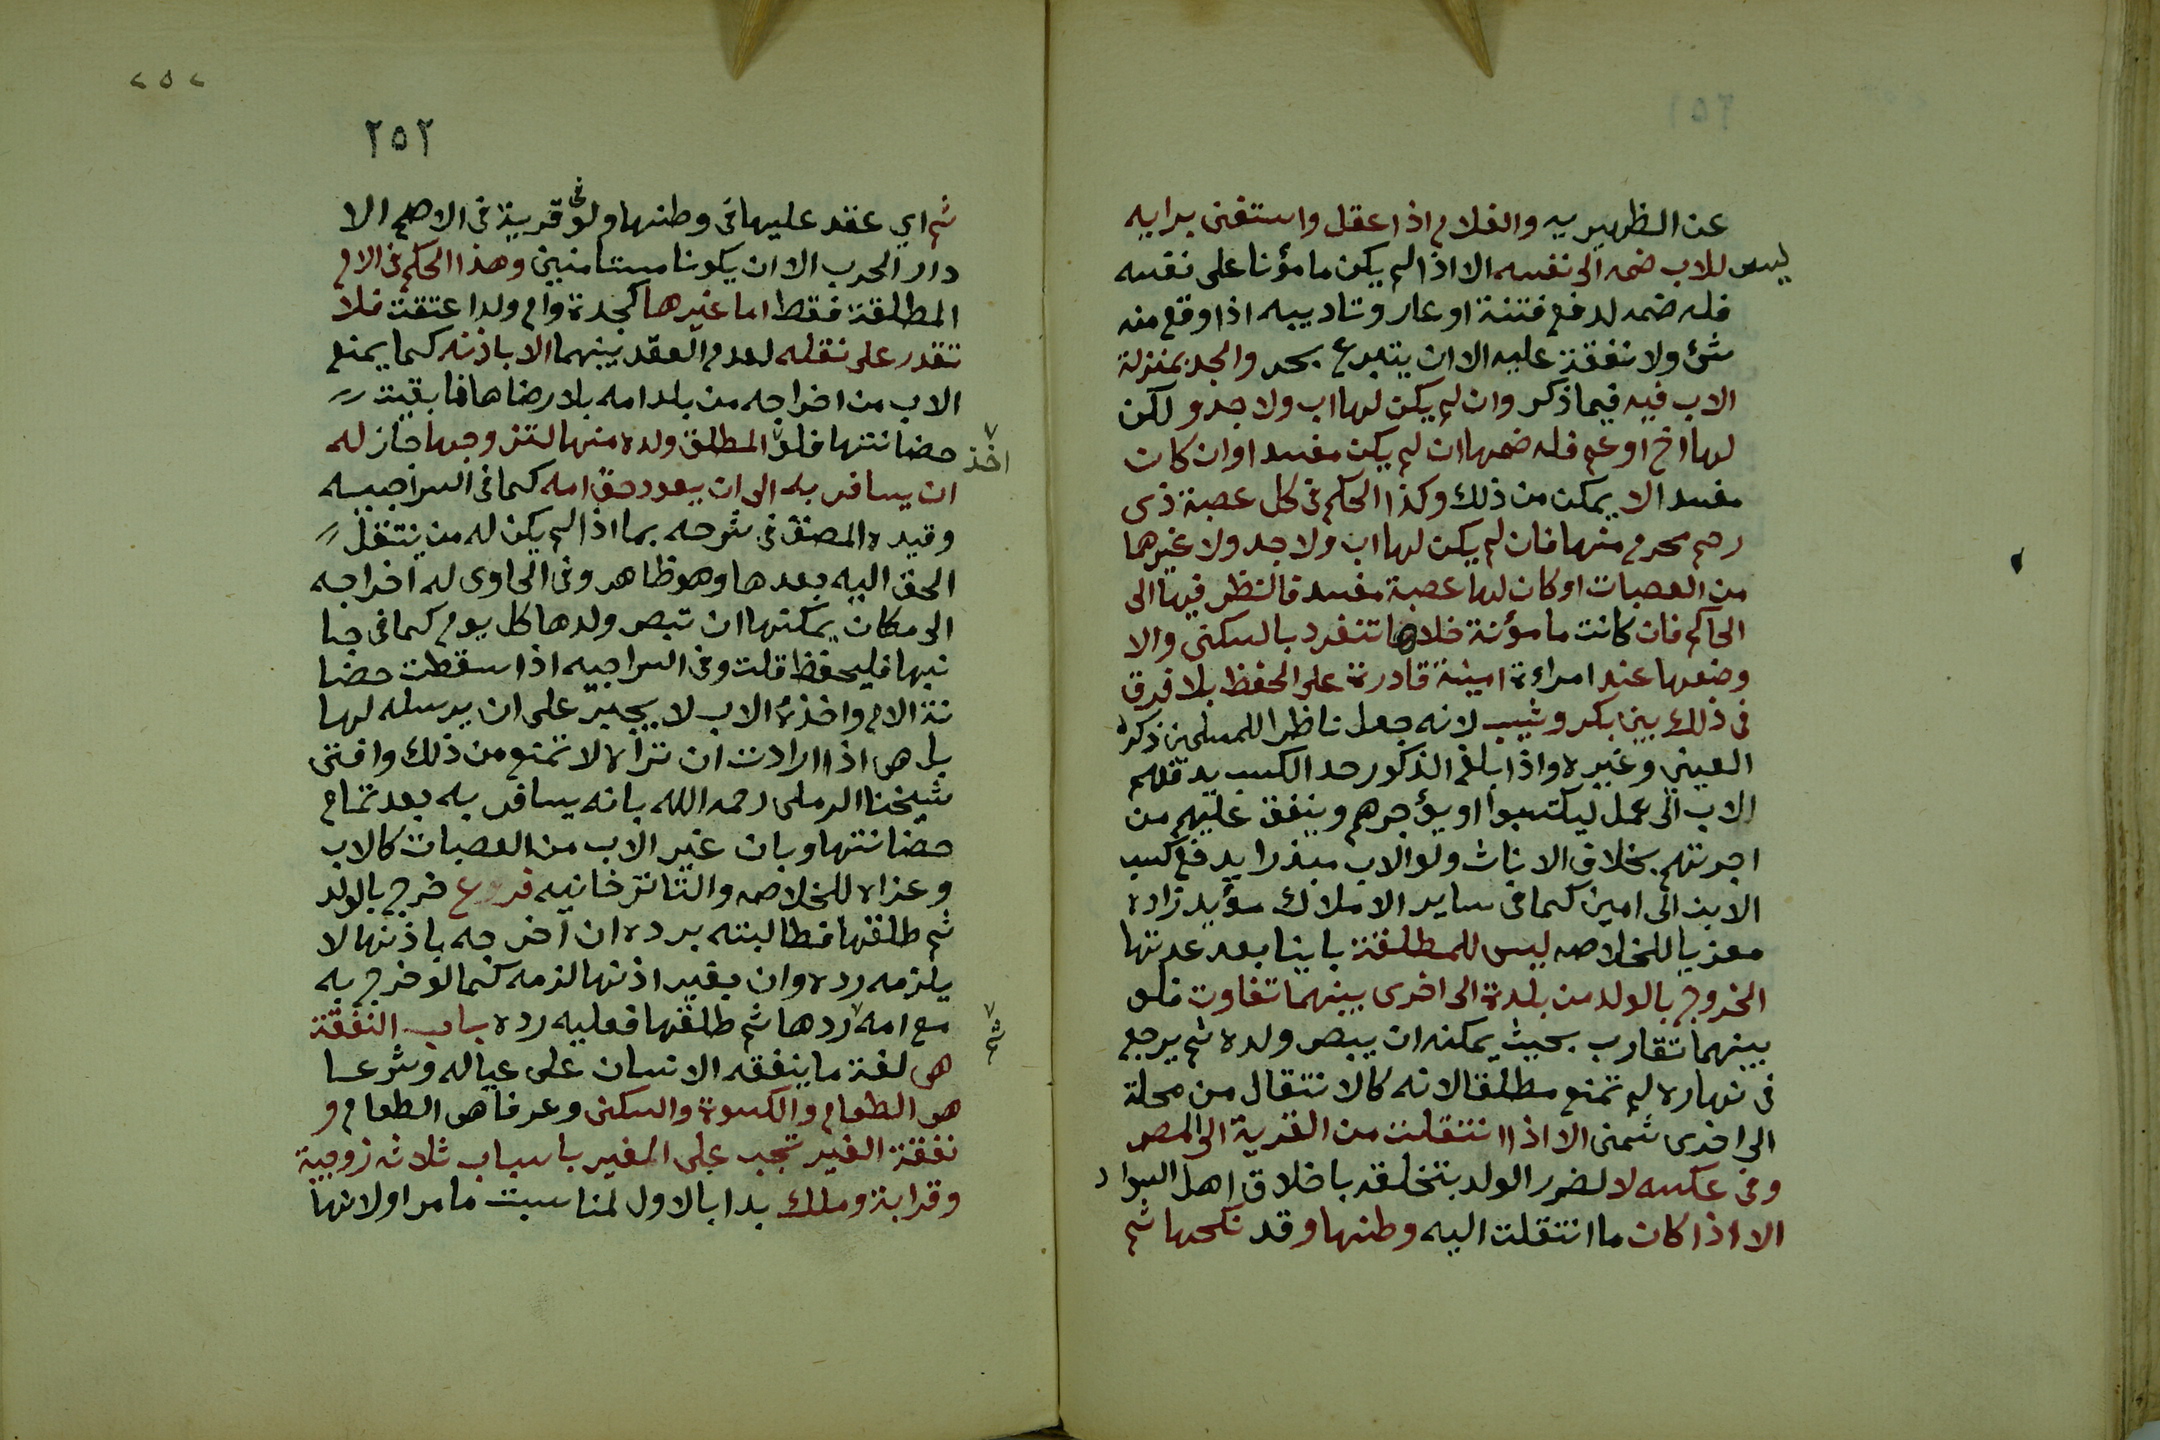 عن الظهيريه والغلام اذا عقل واستغنى برايه
ليس للاب ضمه الى نفسه الا اذا لم يكن مامؤنا على نفسه
فله ضمه لدفع فتنة او عار وتاديبه اذا وقع منه
شئ ولا نفقة عليه الا ان يتبرع بحر والجد بمنزلة
الاب فيه فيما ذكر وان لم يكن لها اب ولا جد و لكن
لها اخ او عم فله ضمها ان لم يكن مفسدا وان كان
مفسدا لا يمكن من ذلك وكذا الحكم فى كل عصبة ذى
رحم محرم منها فان لم يكن لها اب ولا جد ولا غيرهما
من العصبات او كان لها عصبة مفسد فالنظر فيها الى
الحاكم فان كانت مامؤنة خلاها تنفرد بالسكنى والا
وضعها عند امراءة امينة قادرة على الحفظ بلا فرق
فى ذلك بين بكر وثيب لانه جعل ناظرا للمسلمين ذكره
العينى وغيره واذا بلغ الذكور حد الكسب يدفعهم
الاب الى عمل ليكتسبوا او يؤجرهم وينفق عليهم من
اجرتهم بخلاف الاناث ولو الاب مبذرا يدفع كسب
الابن الى امين كما فى ساير الاملاك مؤيد زاده
معزيا للخلاصه ليس للمطلقة باينا بعد عدتها
الخروج بالولد من بلدة الى اخرى بينهما تفاوت فلو
بينهما تقارب بحيث يمكنه ان يبصر ولده ثم يرجع
فى نهاره لم تمنع مطلقا لانه كالانتقال من محلة
الى اخرى شمنى الا اذا انتقلت من القرية الى المصر
وفى عكسه لا لضرر الولد بتخلقه باخلاق اهل السواد
الا اذا كان ما انتقلت اليه وطنها وقد نكحها ثم
٢٥٢
٢٥٢
ثم اي عقد عليها فى وطنها ولو فى قرية فى الاصح الا
دار الحرب الا ان يكونا مستامنين وهذا الحكم فى الام
المطلقة فقط اما غيرها كجدة وام ولد اعتقت فلا
تقدر على نقله لعدم العقد بينهما الا باذنه كما يمنع
الاب من اخراجه من بلد امه بلا رضاها ما بقيت
حضانتها فلو اخذ المطلق ولده منها لتزوجها جاز له
ان يسافر به الى ان يعود حق امه كما فى السراجيه
وقيده المصنف فى شرحه بما اذا لم يكن له من ينتقل
الحق اليه بعدها وهو ظاهر وفى الحاوى له اخراجه
الى مكان يمكنها ان تبصر ولدها كل يوم كما فى جا
نبها فليحفظ قلت وفى السراجيه اذا سقطت حضا
نة الام واخذه الاب لا يجبر على ان يرسله لها
بل هى اذا ارادت ان تراه لا تمنع من ذلك وافتى
شيخنا الرملى رحمه الله بانه يسافر به بعد تمام
حضانتها وبان غير الاب من العصبات كالاب
وعزاه للخلاصه والتاترخانيه فروع خرج بالولد
ثم طلقها فطالبته برده ان اخرجه باذنها لا
يلزمه رده وان بغير اذنها لزمه كما لو خرج به
مع امه ثم ردها ثم طلقها فعليه رده باب النفقة
هى لغة ما ينفقه الانسان على عياله وشرعا
هو الطعام والكسوة والسكنى وعرفا هى الطعام و
نفقة الغير تجب على الغير باسباب ثلاثه زوجية
وقرابة وملك بدا بالاول لمناسبت ما مر او لانها